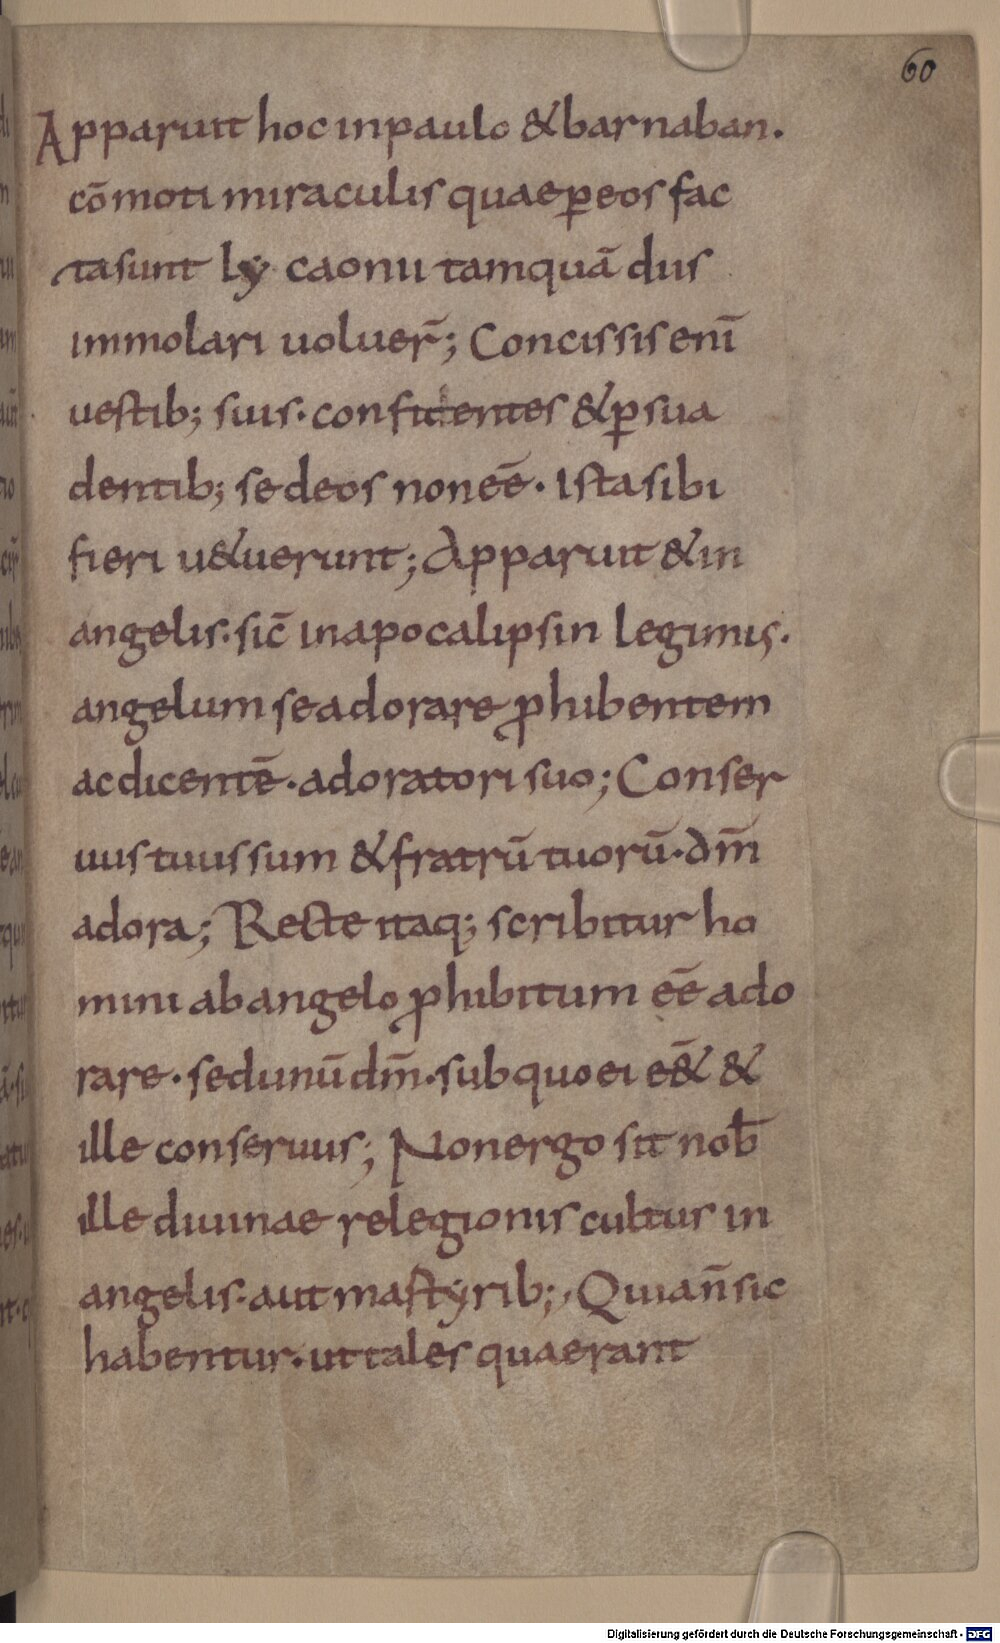 60
Apparuit hoc inpaulo &barnaban.
cōmoti miraculis quaep̄eos fac
tasunt ly caonii tamquā dus
immolari uoluer̄; Concissis eni̅
uestib; suis· confitentes &p̄sua
dentib; sedeos nonēē· Istasibi
fieri u&uerunt; Apparuit &in
angelis· sic̄ inapocalipsin legimus·
angelum seadorare ꝓhibentem
acdicentē· adoratori suo; Conser
uus tuus sum &fratrū tuorū· dm̄
adora; Recte itaq; scribitur ho
mini abangelo ꝓhibitum ēē ado
rare· sedunū dm̄· subquo ei eē& &
ille conseruus; Nonergo sit nob̄
ille diuinae relegionis cultus in
angelis· aut mastyrib; Quian̄sic
habentur· ut tales quaerant
Digitalisierung gefördert durch die Deutsche Forschungsgemeinschaft - DFG